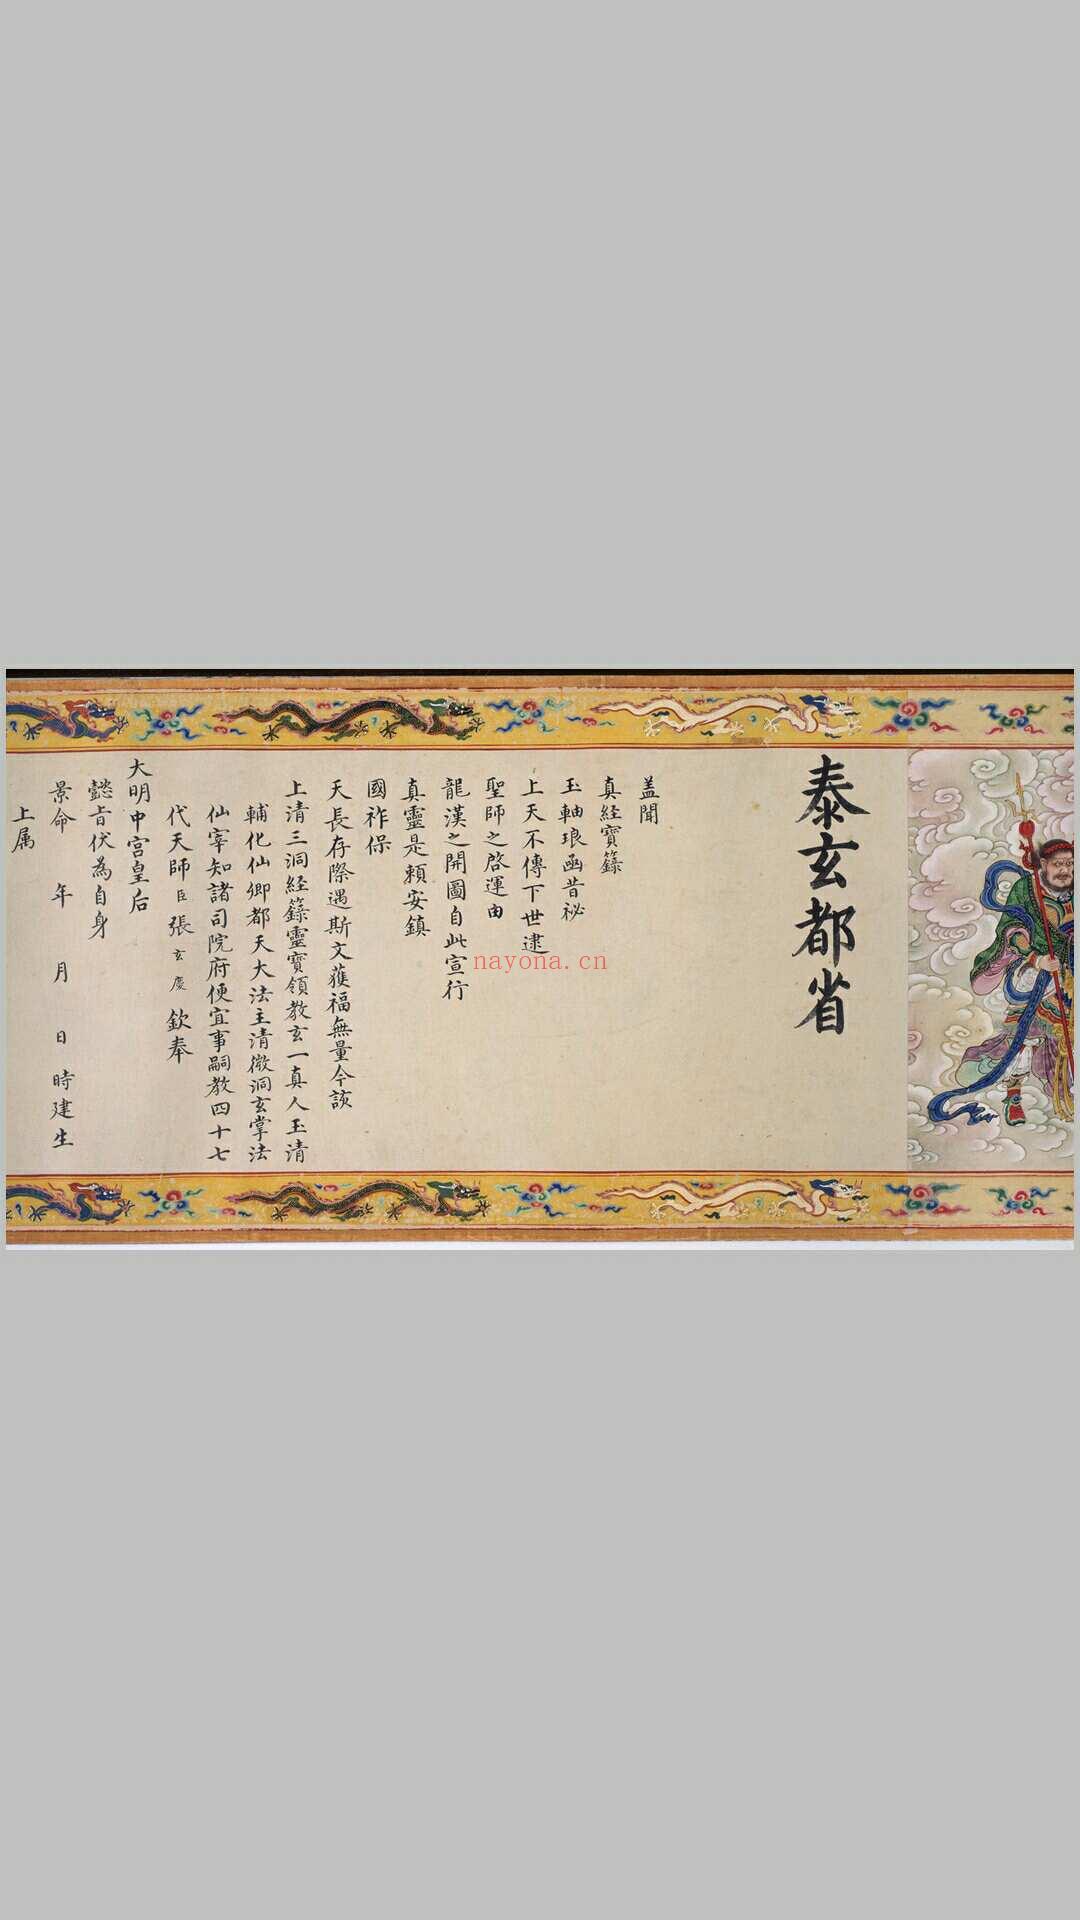 泰玄都省
盖聞
真経寳籙
玉軸琅凾昔祕
上天不傳下世逮
聖師之啓運由
龍漢之開圖自此宣行
真靈是頼安鎮
國祚保
天長存際遇斯文蒦福無量今該
上清三洞経籙靈寳領教玄一真人玉清
輔化仙卿都天大法主清微洞玄掌法
仙宰知諸司院府便宜事嗣教四十七
代天師臣張玄慶欽奉
大明中宫皇后
懿旨伏為自身
景命　年　月　日時建生
上属
nayona.cn